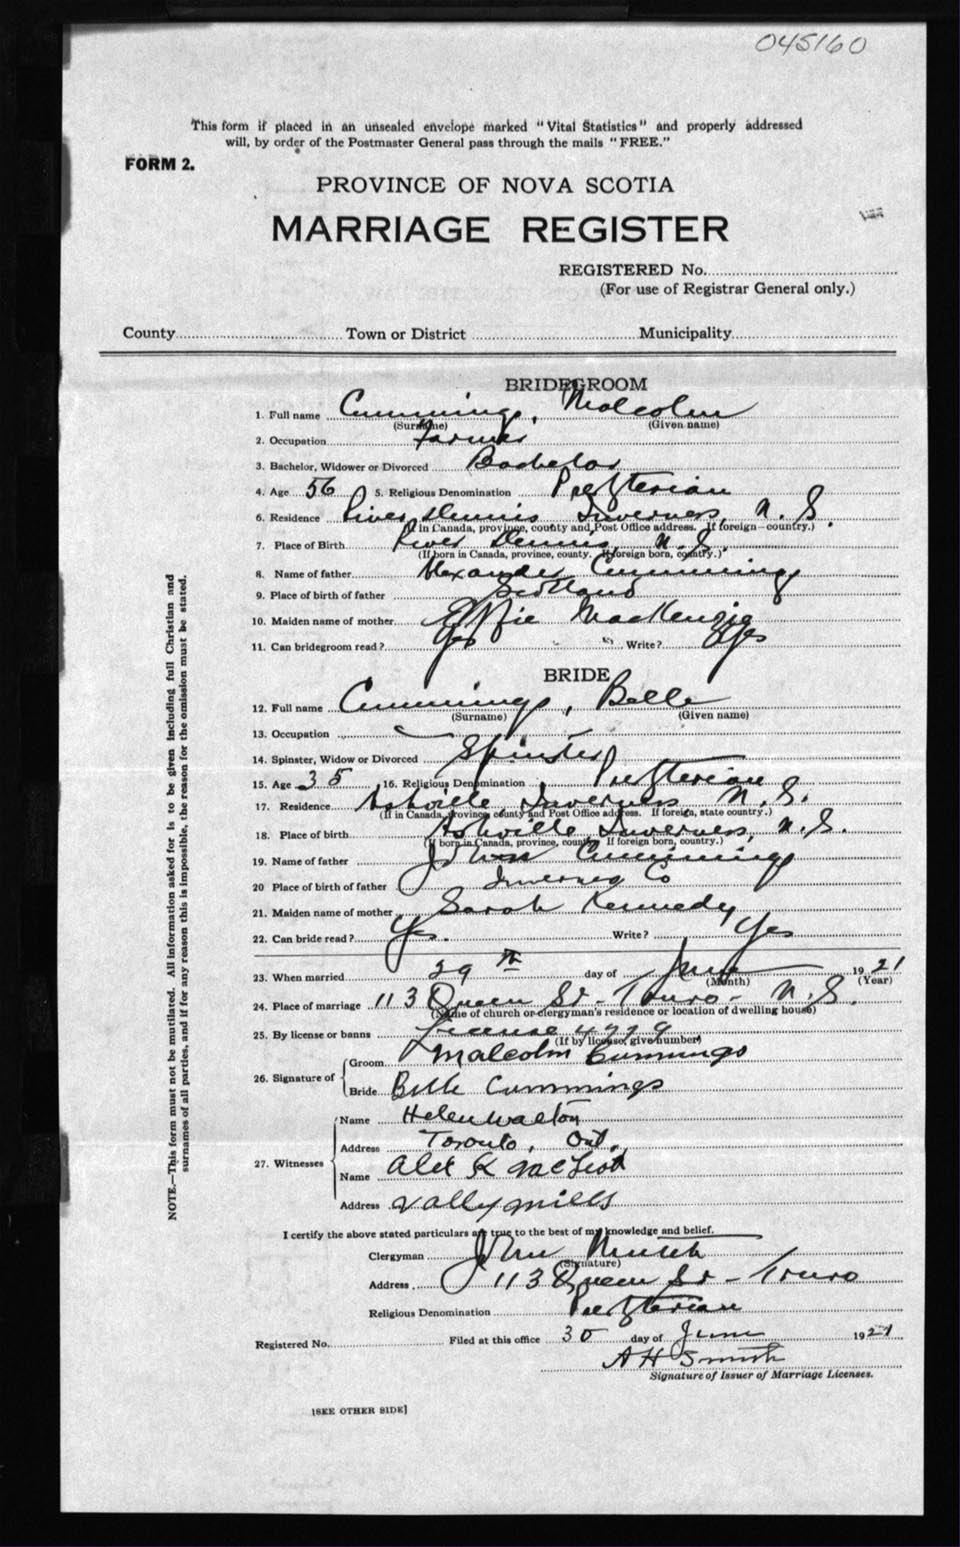 045160
This form if placed in an unsealed envelope marked "Vital Statistics" and properly addressed
will, by order of the Postmaster General pass through the mails "FREE."
FORM 2.
PROVINCE OF NOVA SCOTIA
MARRIAGE REGISTER
REGISTERED No.
(For use of Registrar General only.)
County Town or District Municipality
BRIDEGROOM
1. Full name Cummings, Malcolm
(Surname) (Given name)
2. Occupation Farmer
3. Bachelor, Widower or Divorced Bachelor
4. Age 56 5. Religious Denomination Presbyterian
6. Residence River Dennis Inverness, N. S.
(If in Canada, province, county and Post Office address. If foreign—country.)
7. Place of Birth River Dennis, N. S.
(If born in Canada, province, county. If foreign born, country.)
8. Name of father Alexander Cummings
9. Place of birth of father Scotland
10. Maiden name of mother Effie MacKenzie
11. Can bridegroom read? Yes Write? Yes
BRIDE
12. Full name Cummings, Belle
(Surname) (Given name)
13. Occupation
14. Spinster, Widow or Divorced Spinster
15. Age 35 16. Religious Denomination Presbyterian
17. Residence Ashville Inverness N. S.
(If in Canada, province, county and Post Office address. If foreign, state country.)
18. Place of birth Ashville Inverness, N. S.
(If born in Canada, province, county. If foreign born, country.)
19. Name of father John Cummings
20 Place of birth of father Inverness Co
21. Maiden name of mother Sarah Kennedy
22. Can bride read? Yes. Write? Yes
23. When married 29th day of June 1921
(Month) (Year)
24. Place of marriage 113 Queen St - Truro - N. S.
(Name of church or clergyman's residence or location of dwelling house)
25. By license or banns License 4729
(If by license, give number)
26. Signature of Groom Malcolm Cummings
Bride Belle Cummings
27. Witnesses Name Helen Walton
Address Toronto, Ont.
Name Alex K McLeod
Address Vally Mills
I certify the above stated particulars are true to the best of my knowledge and belief.
Clergyman John
(Signature)
Address 113 Queen St - Truro
Religious Denomination Presbyterian
Registered No. Filed at this office 30 day of June 1921
A H Smith
Signature of Issuer of Marriage Licenses.
[SEE OTHER SIDE]
NOTE.—This form must not be mutilated. All information asked for is to be given including full Christian and
surnames of all parties, and if for any reason this is impossible, the reason for the omission must be stated.